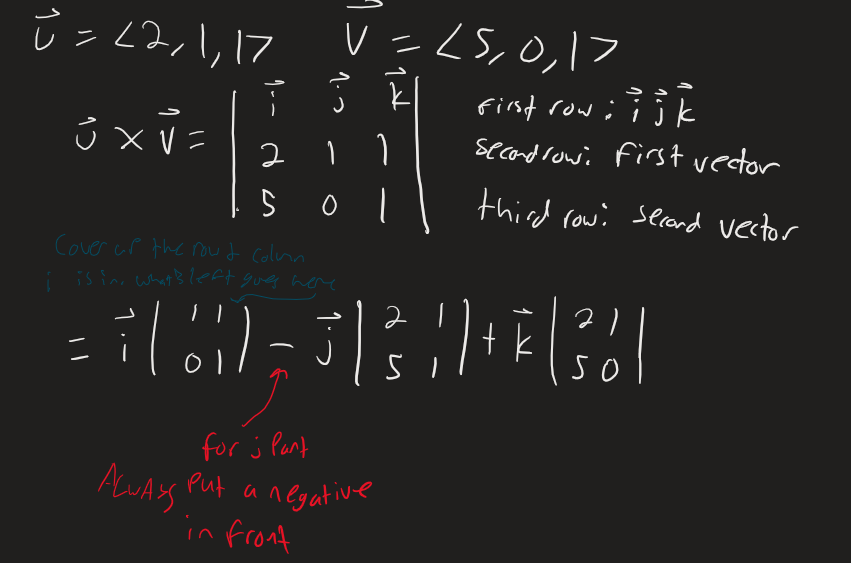 u⃗ = <2, 1, 1> v⃗ = <5, 0, 1>
u⃗ × v⃗ = | i⃗ j⃗ k⃗ |
| 2 1 1 |
| 5 0 1 |
First row: i⃗ j⃗ k⃗
second row: First vector
third row: second vector
Cover up the row & column
i is in. what's left goes here
= i⃗ | 1 1 | - j⃗ | 2 1 | + k⃗ | 2 1 |
| 0 1 | | 5 1 | | 5 0 |
for j part
ALWAYS put a negative
in front